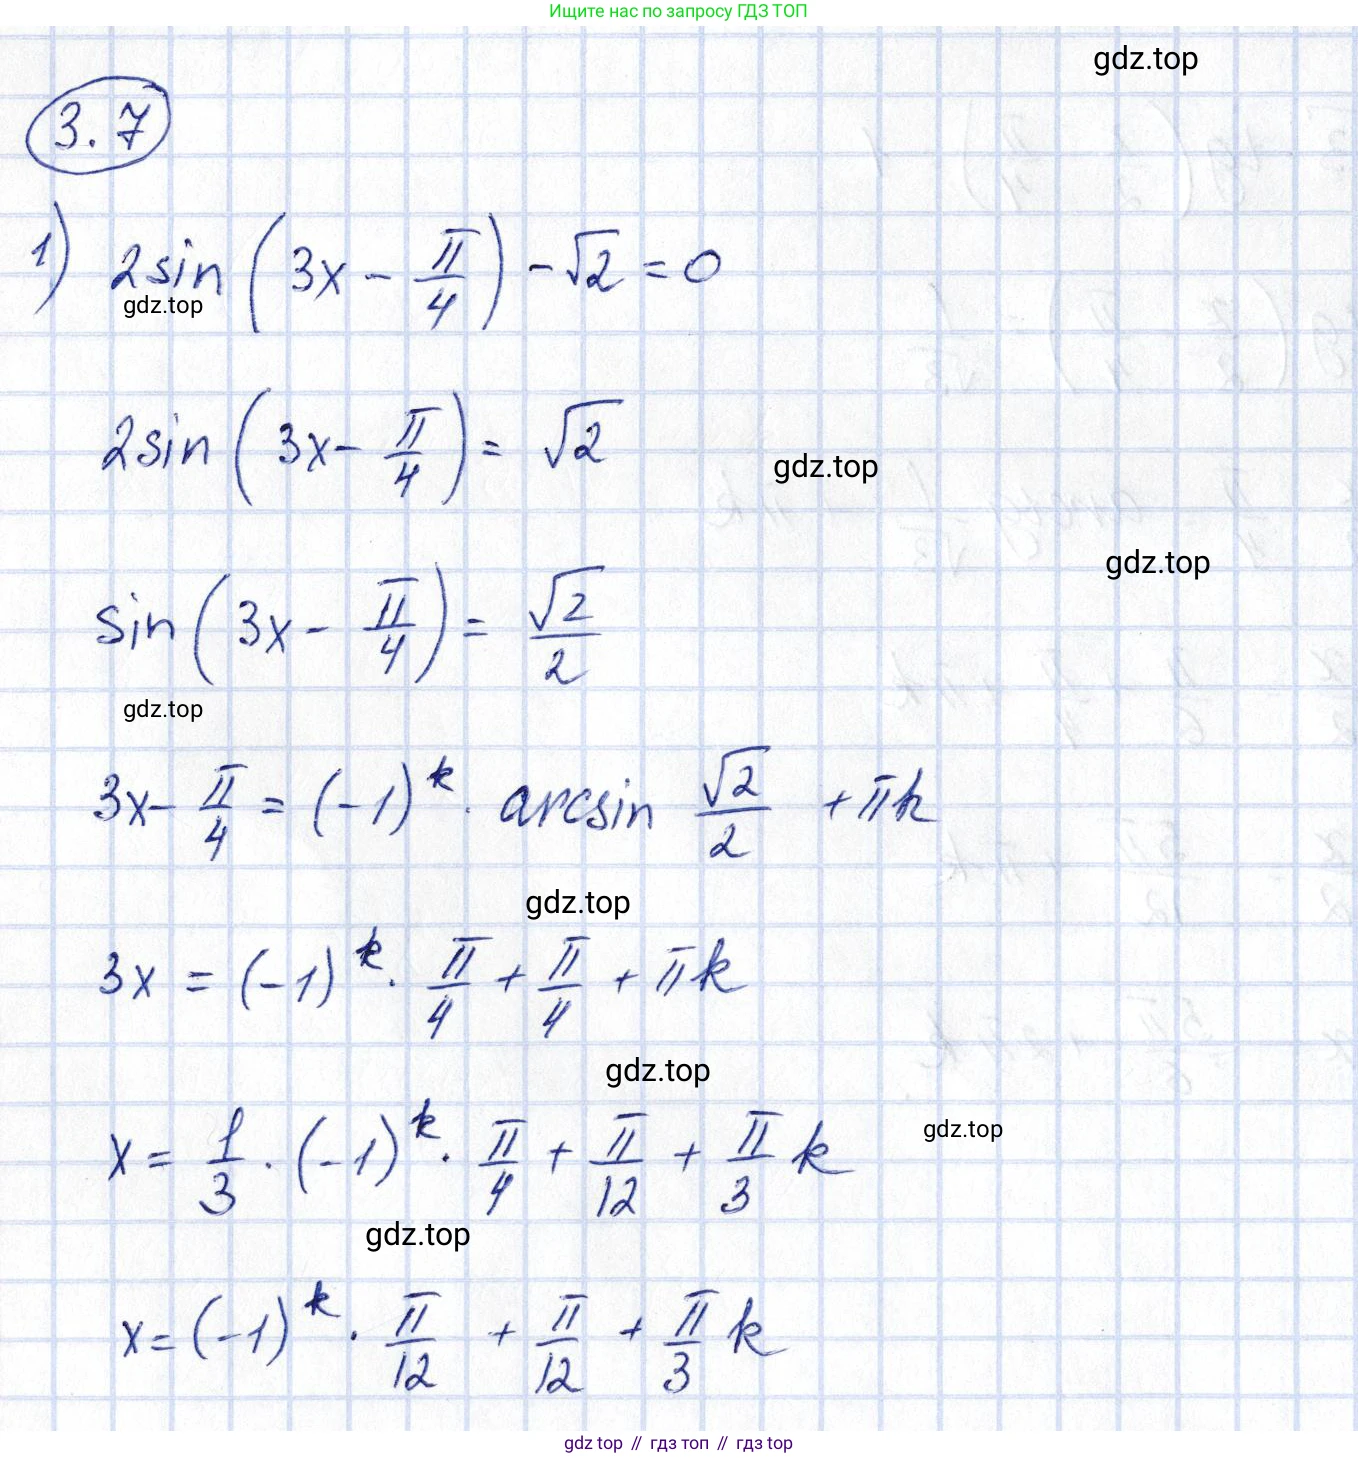 Ищите нас по запросу ГДЗ ТОП
gdz.top
3.7
1) 2sin(3x - π/4) - √2 = 0
gdz.top
2sin(3x - π/4) = √2
gdz.top
gdz.top
sin(3x - π/4) = √2/2
gdz.top
3x - π/4 = (-1)^k · arcsin √2/2 + πk
gdz.top
3x = (-1)^k · π/4 + π/4 + πk
gdz.top
gdz.top
x = 1/3 · (-1)^k · π/4 + π/12 + π/3 k
gdz.top
x = (-1)^k · π/12 + π/12 + π/3 k
gdz top // гдз топ // гдз top